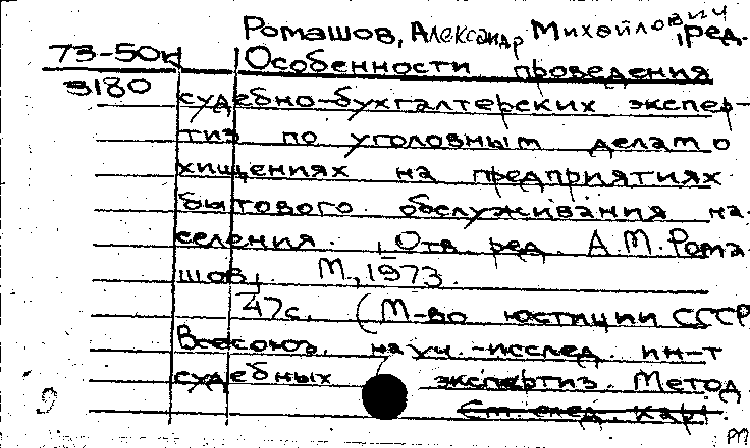 Ромашов, Александр Михайлович, ред.
73-50к Особенности проведения
3180 судебно-бухгалтерских экспер-
тиз по уголовным делам о
хищениях на предприятиях
бытового обслуживания на-
селения. Отв. ред. А.М. Рома
шов. М., 1973.
47 с. (М-во юстиции СССР
Всесоюз. науч.-исслед. ин-т
судебных экспертиз. Метод
9 См. след. карт